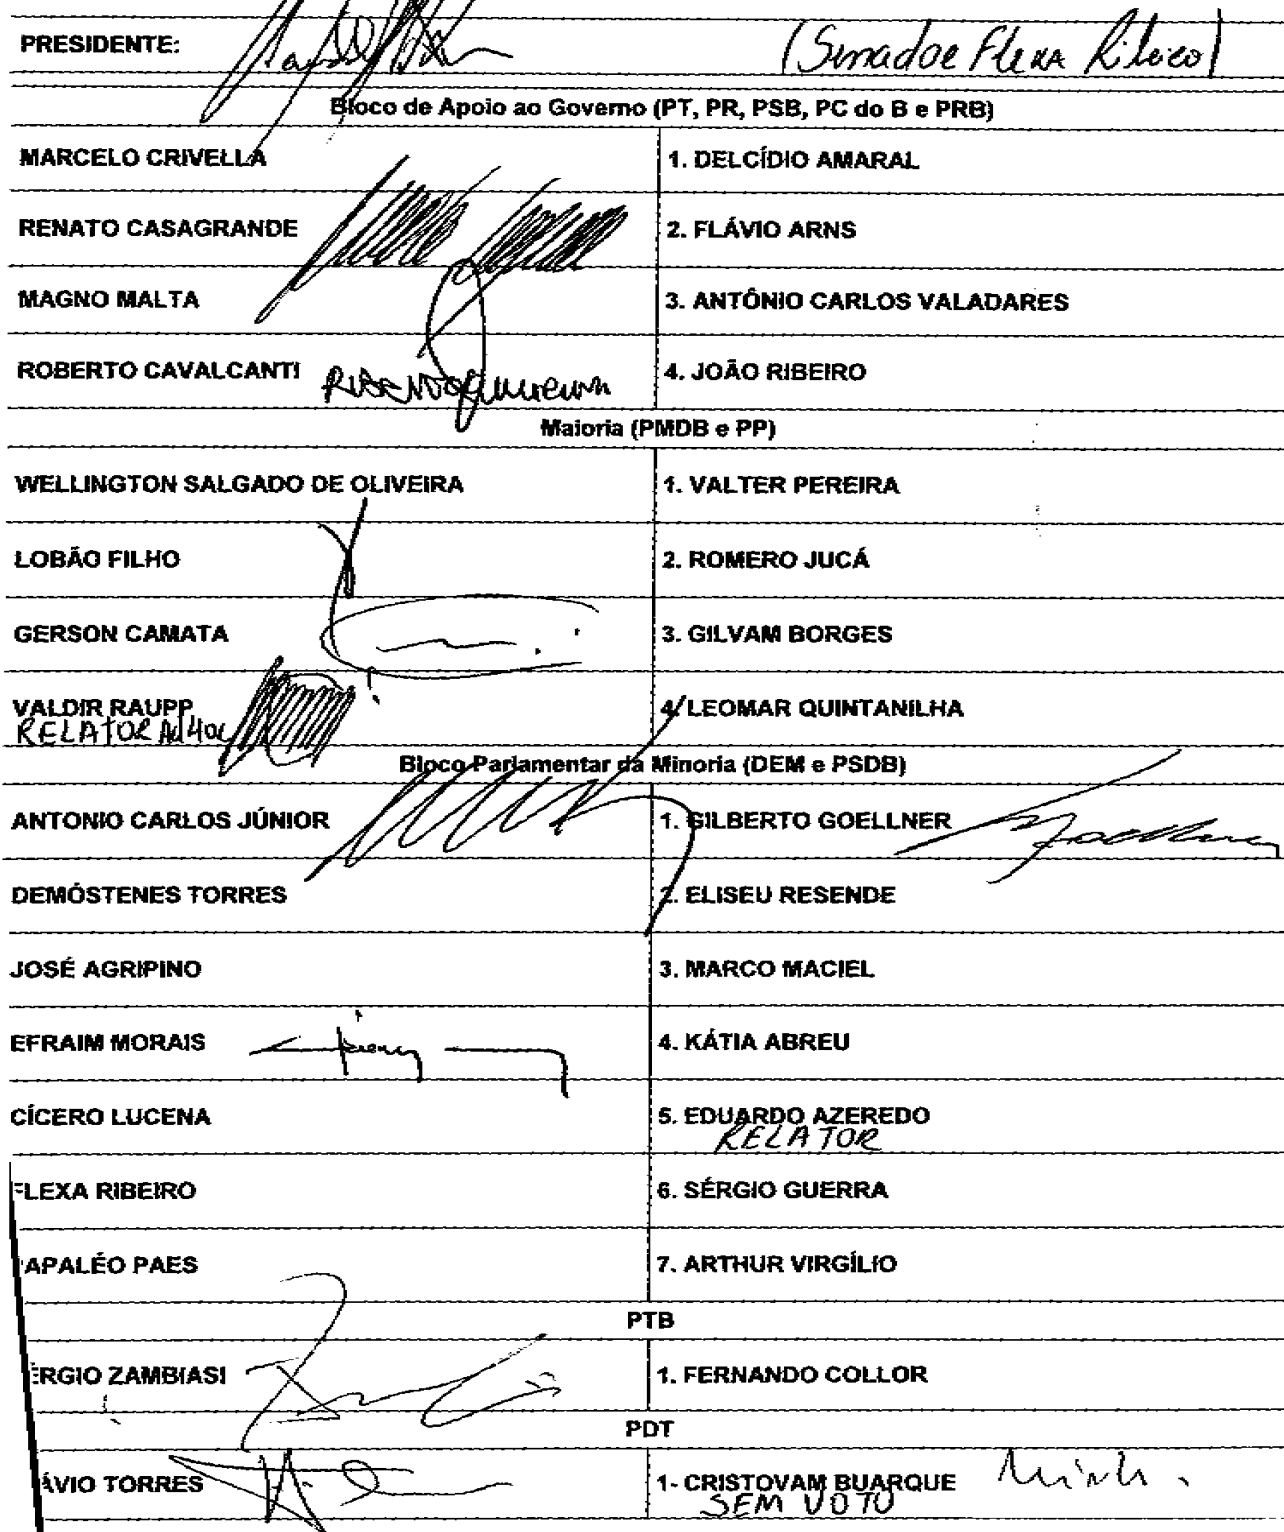 PRESIDENTE: (Senador Flexa Ribeiro)
Bloco de Apoio ao Governo (PT, PR, PSB, PC do B e PRB)
MARCELO CRIVELLA 1. DELCÍDIO AMARAL
RENATO CASAGRANDE 2. FLÁVIO ARNS
MAGNO MALTA 3. ANTÔNIO CARLOS VALADARES
ROBERTO CAVALCANTI 4. JOÃO RIBEIRO
Maioria (PMDB e PP)
WELLINGTON SALGADO DE OLIVEIRA 1. VALTER PEREIRA
LOBÃO FILHO 2. ROMERO JUCÁ
GERSON CAMATA 3. GILVAM BORGES
VALDIR RAUPP 4. LEOMAR QUINTANILHA
RELATOR Ad Hoc
Bloco Parlamentar da Minoria (DEM e PSDB)
ANTONIO CARLOS JÚNIOR 1. GILBERTO GOELLNER
DEMÓSTENES TORRES 2. ELISEU RESENDE
JOSÉ AGRIPINO 3. MARCO MACIEL
EFRAIM MORAIS 4. KÁTIA ABREU
CÍCERO LUCENA 5. EDUARDO AZEREDO
RELATOR
FLEXA RIBEIRO 6. SÉRGIO GUERRA
APALÉO PAES 7. ARTHUR VIRGÍLIO
PTB
ÉRGIO ZAMBIASI 1. FERNANDO COLLOR
PDT
ÁVIO TORRES 1- CRISTOVAM BUARQUE
SEM VOTO